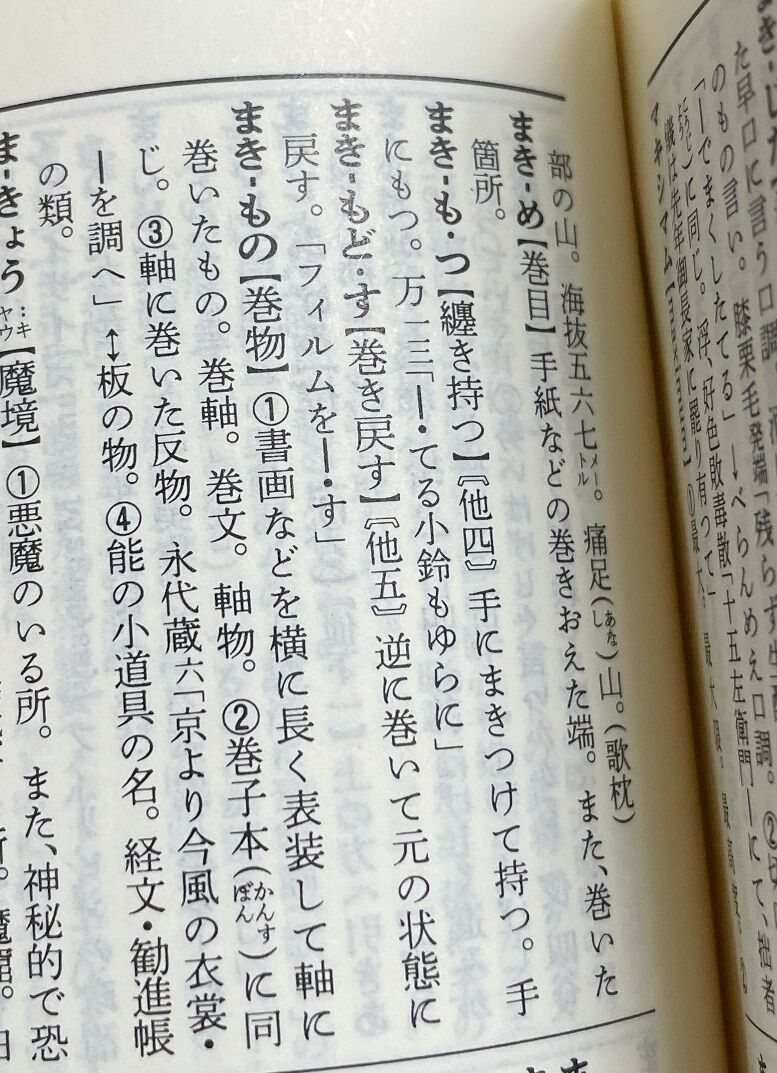 た早口に言う口調。
のもの言い。膝栗毛発端「残らず
「―でまくしたてる」→べらんめえ口調。
マキシマム
部の山。海抜五六七メートル。痛足(あなし)山。(歌枕)
まき‐め【巻目】手紙などの巻きおえた端。また、巻いた
箇所。
まき‐も・つ【纏き持つ】〘他四〙手にまきつけて持つ。手
にもつ。万一三「―・てる小鈴もゆらに」
まき‐もど・す【巻き戻す】〘他五〙逆に巻いて元の状態に
戻す。「フィルムを―・す」
まき‐もの【巻物】①書画などを横に長く表装して軸に
巻いたもの。巻軸。巻文。軸物。②巻子本(かんすぼん)に同
じ。③軸に巻いた反物。永代蔵六「京より今風の衣裳・
―を調へ」↔板の物。④能の小道具の名。経文・勧進帳
の類。
ま‐きょう キヤウ【魔境】①悪魔のいる所。また、神秘的で恐